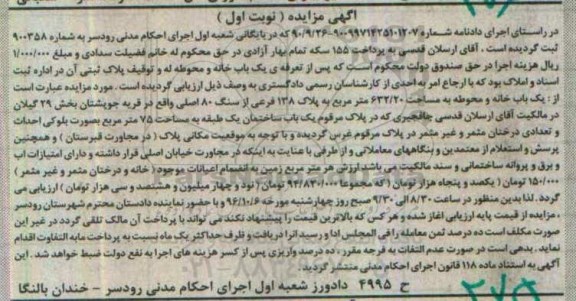 آگهی مزایده ( نوبت اول )
در راستای اجرای دادنامه شماره ۹۰۰۹۹۷۱۴۲۵۱۰۱۲۰۷-۹۰/۹/۲۶ که در بایگانی شعبه اول اجرای احکام مدنی رودسر به شماره ۹۰۰۳۵۸
ثبت گردیده است . آقای ارسلان قدسی به پرداخت ۱۵۵ سکه تمام بهار آزادی در حق محکوم له خانم فضیلت سدادی و مبلغ ۱/۰۰۰/۰۰۰
ریال هزینه اجرا در حق صندوق دولت محکوم است که پس از تعرفه ی یک باب خانه و محوطه له و توقیف پلاک ثبتی آن در اداره ثبت
اسناد و املاک بود که با ارجاع امر به احدی از کارشناسان رسمی دادگستری به وصف ذیل ارزیابی گردیده است . مورد مزایده عبارت است
از : یک باب خانه و محوطه به مساحت ۶۳۲/۲۰ متر مربع به پلاک ۱۳۸ فرعی از سنگ ۸۰ اصلی واقع در قریه جوپشتان بخش ۲۹ گیلان
در مالکیت آقای ارسلان قدسی چافجیری که در پلاک مرقوم یک باب ساختمان یک طبقه به مساحت ۷۵ متر مربع بصورت بلوکی احداث
و تعدادی درختان مثمر و غیر مثمر در پلاک مرقوم غرس گردیده و با توجه به موقعیت مکانی پلاک ( در مجاورت قبرستان ) و همچنین
پرسش و استعلام از معتمدین و بنگاههای معاملاتی و از طرفی با عنایت به اینکه در مجاورت خیابان اصلی قرار داشته و دارای امتیازات آب
و برق و پروانه ساختمانی و سند مالکیت می باشد ارزش هر متر مربع زمین به انضمام اعیانات موجود ( خانه و درختان مثمر و غیر مثمر )
۱۵۰/۰۰۰ تومان ( یکصد و پنجاه هزار تومان ) که مجموعا ۹۴/۸۳۰/۰۰۰ تومان ( نود و چهار میلیون و هشتصد و سی هزار تومان ) ارزیابی می
گردد . لذا بدین منظور در ساعت ۸/۳۰ الی ۹/۳۰ صبح روز چهارشنبه مورخه ۹۶/۱۰/۶ و با حضور نماینده دادستان محترم شهرستان رودسر
، مزایده از قیمت پایه ارزیابی آغاز شده و هر کس که بالاترین قیمت را پیشنهاد نکند می تواند با پرداخت آن مالک تلقی گردد در غیر این
صورت مکلف است ده درصد ثمن معامله را فی المجلس ادا و رسید آنرا دریافت و ظرف حداکثر یک ماه نسبت به پرداخت مابه التفاوت اقدام
نماید . بدهی است در صورت عدم التفات به قرجه مقرر ، ده درصد واریزی پس از کسر هزینه های اجرا به نفع دولت ضبط خواهد شد . این
آگهی به استناد ماده ۱۱۸ قانون اجرای احکام مدنی منتشر گردید .
ح ۴۹۹۵ دادورز شعبه اول اجرای احکام مدنی رودسر - خندان بالنگا
۲۷۵